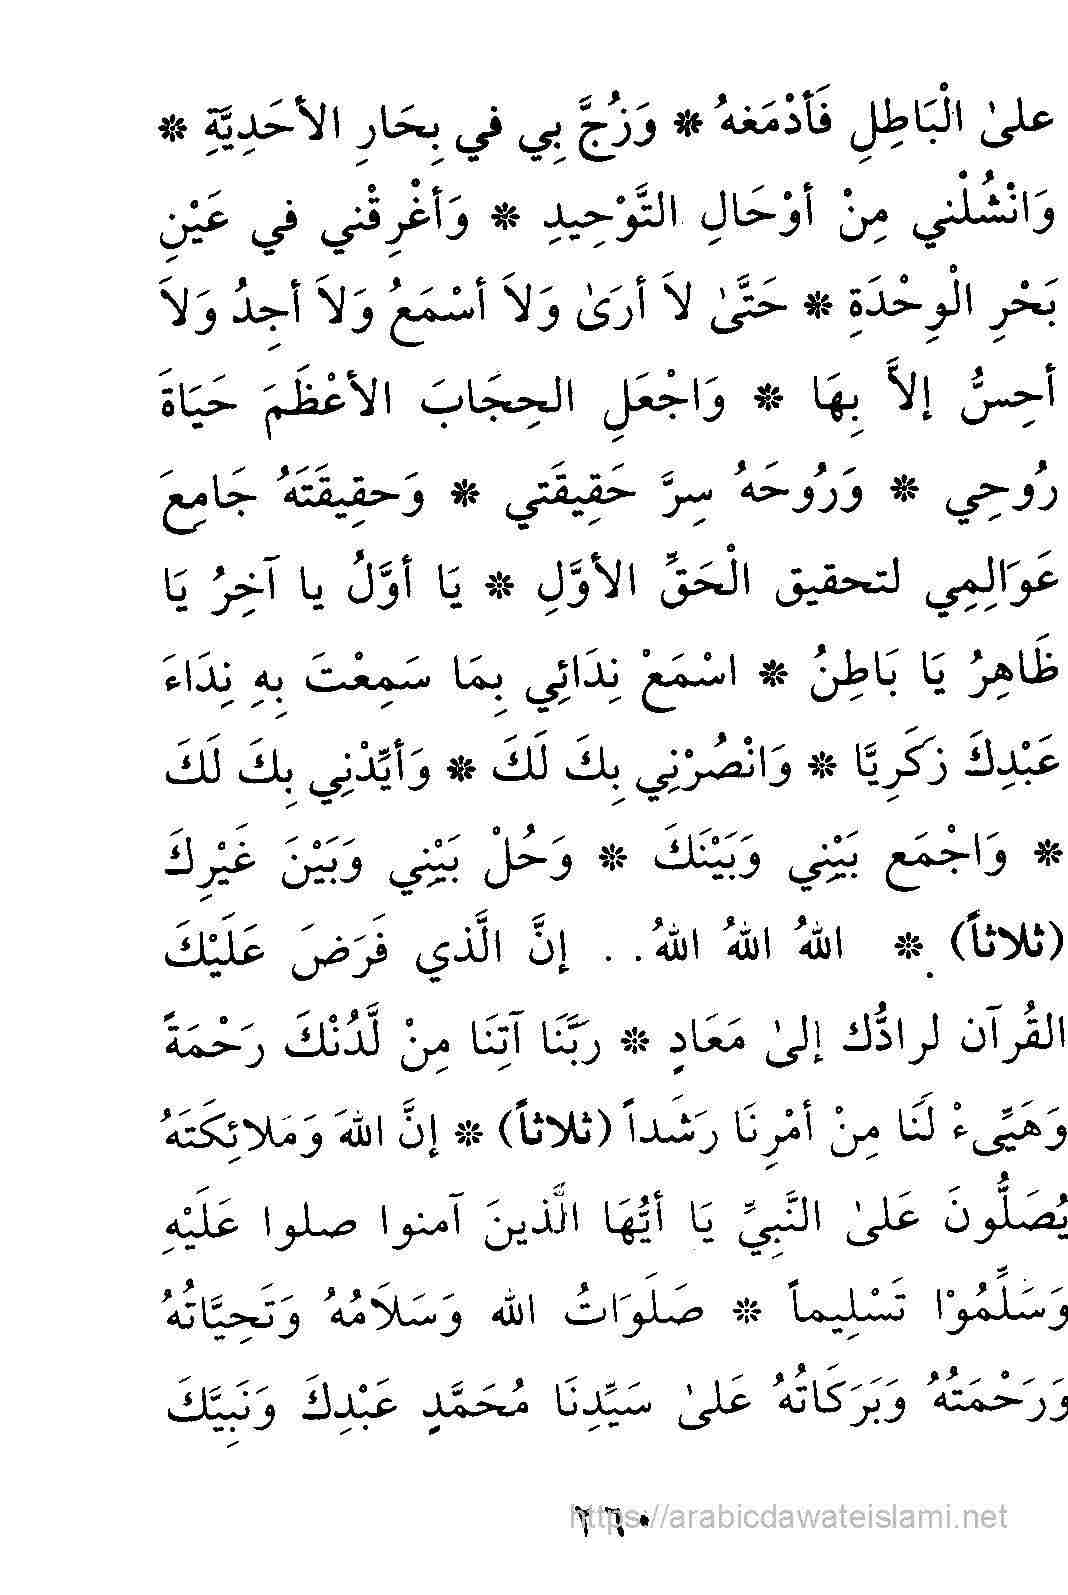 علىٰ الْبَاطِلِ فَأَدْمَغهُ * وَزُجَّ بِي في بِحَارِ الأحَدِيَّةِ *
وَانْشُلْني مِنْ أوْحَالِ التَّوْحِيدِ * وَأغْرِقْني في عَيْنِ
بَحْرِ الْوِحْدَةِ * حَتَّىٰ لاَ أرَىٰ وَلاَ أسْمَعُ وَلاَ أجِدُ وَلاَ
أحِسُّ إلاَّ بِهَا * وَاجْعَلِ الحِجَابَ الأعْظَمَ حَيَاةَ
رُوحِي * وَرُوحَهُ سِرَّ حَقِيقَتي * وَحقِيقَتَهُ جَامِعَ
عَوَالِمِي لتحقيق الْحَقِّ الأوَّلِ * يَا أوَّلُ يا آخِرُ يَا
ظَاهِرُ يَا بَاطِنُ * اسْمَعْ نِدَائِي بِمَا سَمِعْتَ بِهِ نِدَاءَ
عَبْدِكَ زكَرِيَّا * وَانْصُرْنِي بِكَ لَكَ * وَأيِّدْنِي بِكَ لَكَ
* وَاجْمَع بَيْنِي وَبَيْنَكَ * وَحُلْ بَيْنِي وَبَيْنَ غَيْرِكَ
(ثلاثاً) * اللهُ اللهُ اللهُ. . إنَّ الَّذي فَرَضَ عَلَيْكَ
القُرآن لرادُّك إلىٰ مَعَادٍ * رَبَّنَا آتِنَا مِنْ لَّدُنْكَ رَحْمَةً
وَهَيِّىءْ لَنَا مِنْ أمْرِنَا رَشَداً (ثلاثاً) * إنَّ اللهَ وَمَلائِكَتَهُ
يُصَلُّونَ عَلىٰ النَّبِيِّ يَا أيُّهَا الَّذينَ آمنوا صلوا عَلَيْهِ
وَسَلِّمُوْا تَسْلِيماً * صَلَوَاتُ الله وَسَلاَمُهُ وَتَحِيَّاتُهُ
وَرَحْمَتُهُ وَبَرَكَاتُهُ عَلىٰ سَيِّدِنَا مُحَمَّدٍ عَبْدِكَ وَنَبِيَّكَ
٢٦٠
https://arabicdawateislami.net